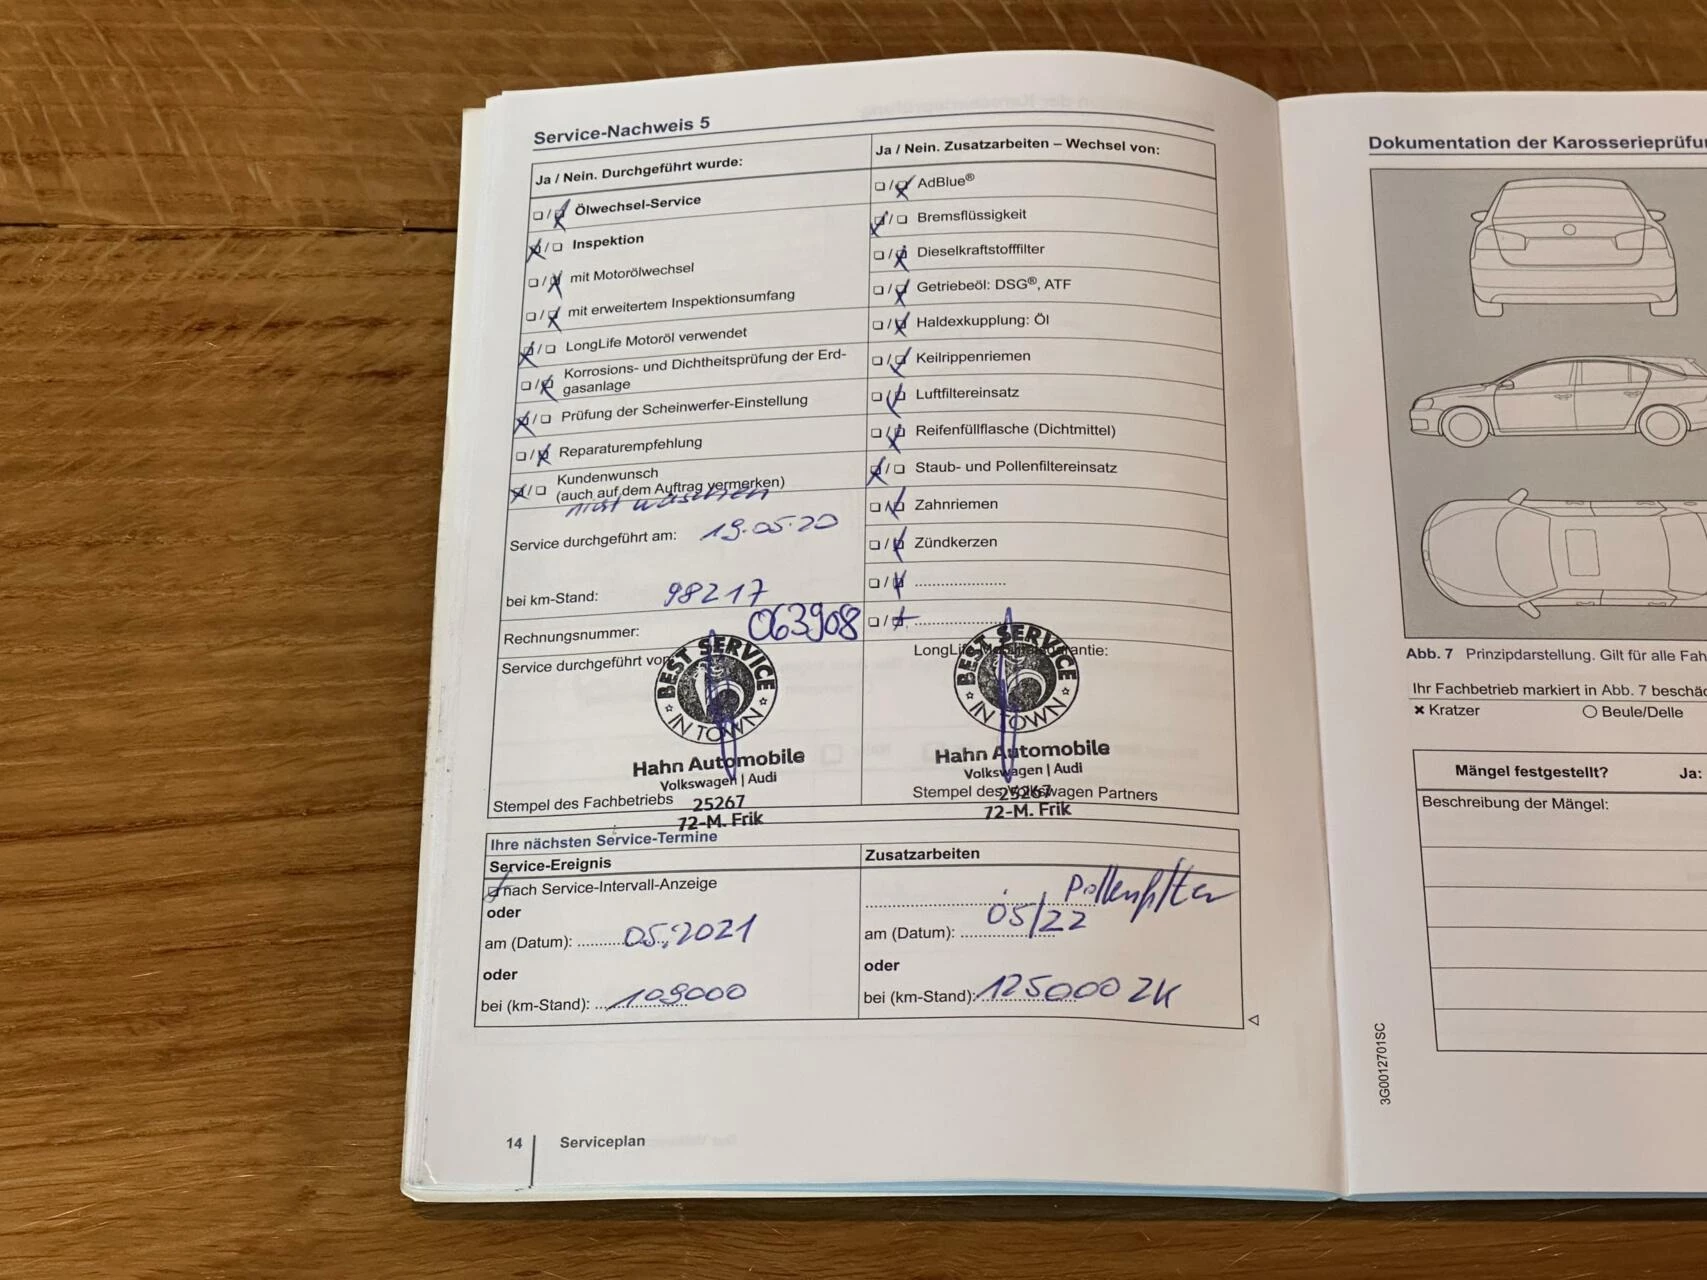 Service-Nachweis 5
Ja / Nein. Durchgeführt wurde:
Ölwechsel-Service
Inspektion
mit Motorölwechsel
mit erweitertem Inspektionsumfang
LongLife Motoröl verwendet
Korrosions- und Dichtheitsprüfung der Erd-
gasanlage
Prüfung der Scheinwerfer-Einstellung
Reparaturempfehlung
Kundenwunsch
(auch auf dem Auftrag vermerken)
nicht waschen
Service durchgeführt am: 19.05.20
bei km-Stand: 98217
Rechnungsnummer: 063908
Service durchgeführt von
BEST SERVICE
IN TOWN
Hahn Automobile
Volkswagen | Audi
Stempel des Fachbetriebs 25267
72-M. Frik
Ja / Nein. Zusatzarbeiten – Wechsel von:
AdBlue®
Bremsflüssigkeit
Dieselkraftstofffilter
Getriebeöl: DSG®, ATF
Haldexkupplung: Öl
Keilrippenriemen
Luftfiltereinsatz
Reifenfüllflasche (Dichtmittel)
Staub- und Pollenfiltereinsatz
Zahnriemen
Zündkerzen
LongLife Mobilitätsgarantie:
BEST SERVICE
IN TOWN
Hahn Automobile
Volkswagen | Audi
Stempel des Volkswagen Partners
25267
72-M. Frik
Ihre nächsten Service-Termine
Service-Ereignis
nach Service-Intervall-Anzeige
oder
am (Datum): 05.2021
oder
bei (km-Stand): 109000
Zusatzarbeiten
Pollenfilter
am (Datum): 05/22
oder
bei (km-Stand): 125000 ZK
14 Serviceplan
Dokumentation der Karosserieprüfu
Abb. 7 Prinzipdarstellung. Gilt für alle Fah
Ihr Fachbetrieb markiert in Abb. 7 beschäd
× Kratzer ○ Beule/Delle
Mängel festgestellt? Ja:
Beschreibung der Mängel:
3G0012701SC